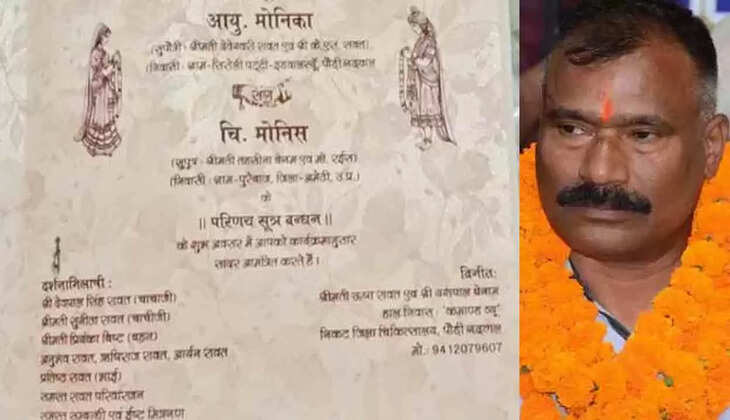 आयु. मोनिका
(सुपौत्री- श्रीमती देवेश्वरी रावत एवं श्री के.एस. रावत)
(निवासी- ग्राम-
संग
चि. मोनिस
(सुपुत्र- श्रीमती तहसीना बेगम एवं मो. रईस)
(निवासी- ग्राम-पुरेबाज, जिला-अमेठी, उ.प्र.)
के
|| परिणय सूत्र बन्धन ||
के शुभ अवसर में आपको कार्यक्रमानुसार
सादर आमंत्रित करते हैं।
दर्शनाभिलाषी :
श्री देवपाल सिंह रावत (चाचाजी)
श्रीमती सुनीता रावत (चाचीजी)
श्रीमती प्रियंका बिष्ट (बहन)
अनुभव रावत, ऋषिराज रावत, आर्यन रावत
प्रतिष्ठ रावत (भाई)
समस्त रावत परिवारजन
समस्त सम्बन्धी एवं ईष्ट मित्रगण
विनीत:
श्रीमती ऊषा रावत एवं श्री यशपाल बेनाम
हाल निवास : 'कमाण्ड व्यू'
निकट जिला चिकित्सालय, पौड़ी गढ़वाल
मो.: 9412079607